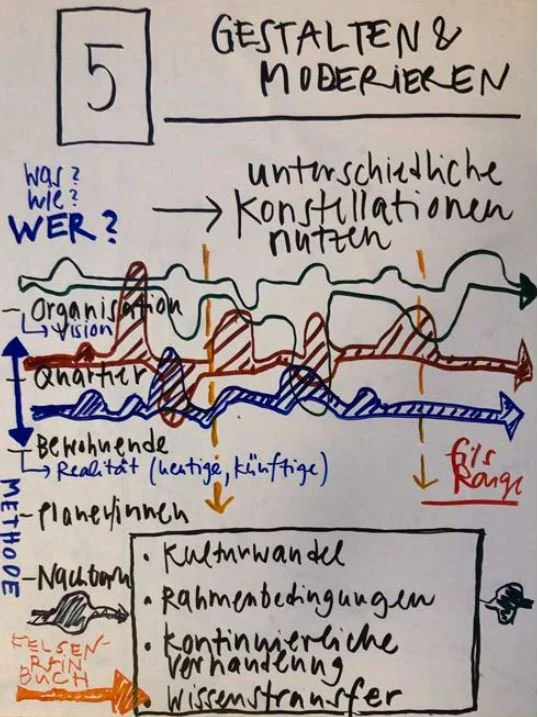 5
GESTALTEN &
MODERIEREN
Was?
Wie?
WER?
unterschiedliche
Konstellationen
nutzen
- Organisation
Vision
- Quartier
- Bewohnende
Realität (heutige, künftige)
fils
Rouge
METHODE
- Planer/innen
- Nachbarn
FELSEN-
RAIN
BUCH
• Kulturwandel
• Rahmenbedingungen
• Kontinuierliche
Verhandlung
• Wissenstransfer